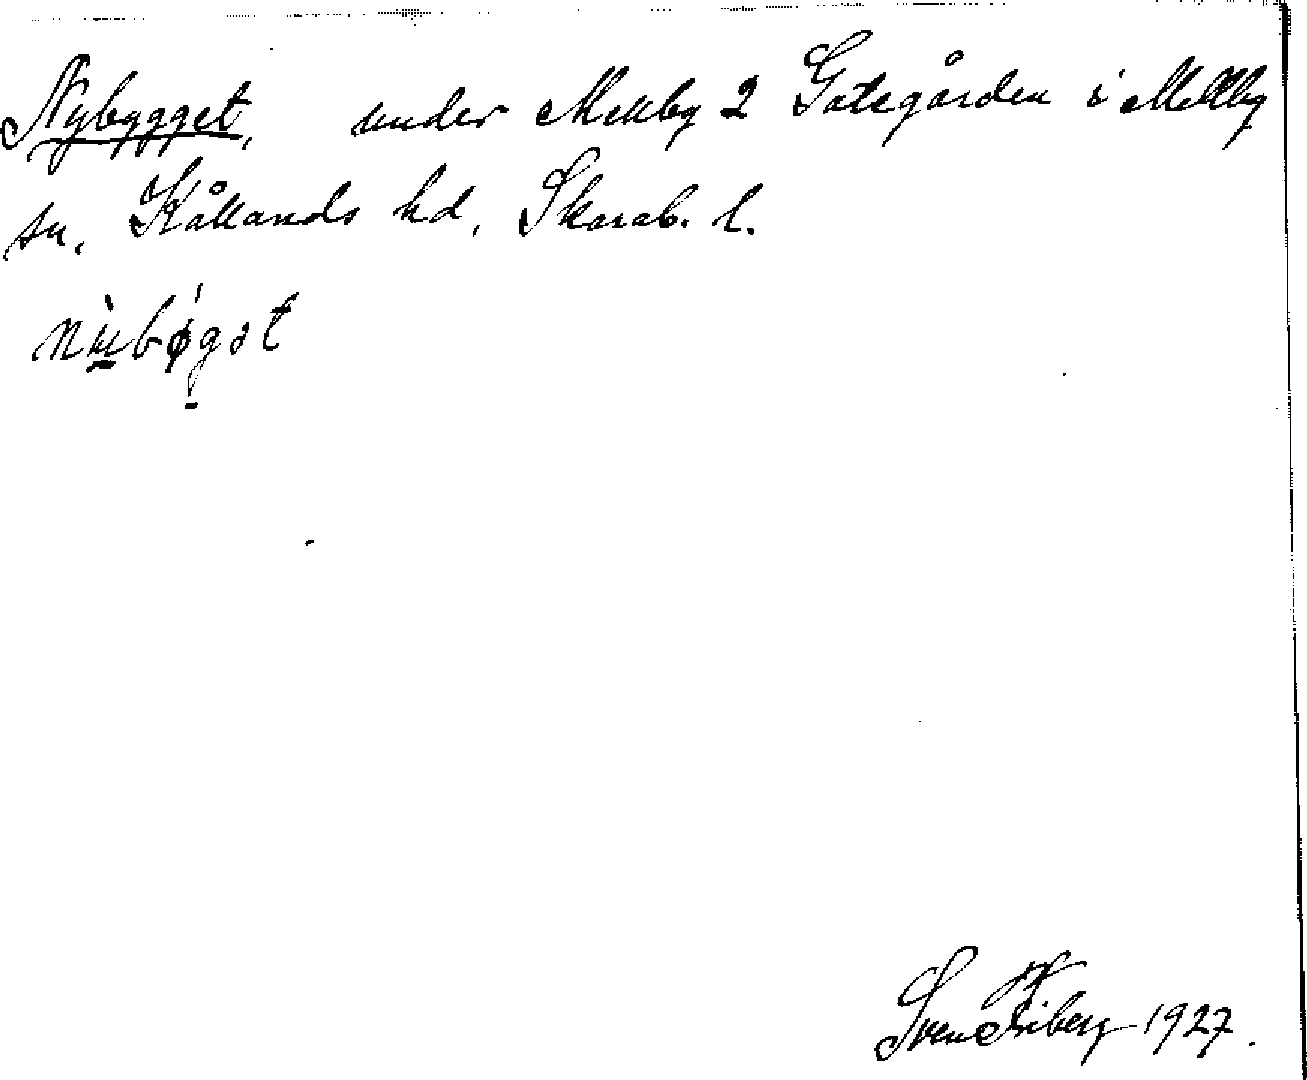 Nybygget, under Mellby 2 Gategården i Mellby
sn, Kållands hd, Skarab. l.
Sven 1927.